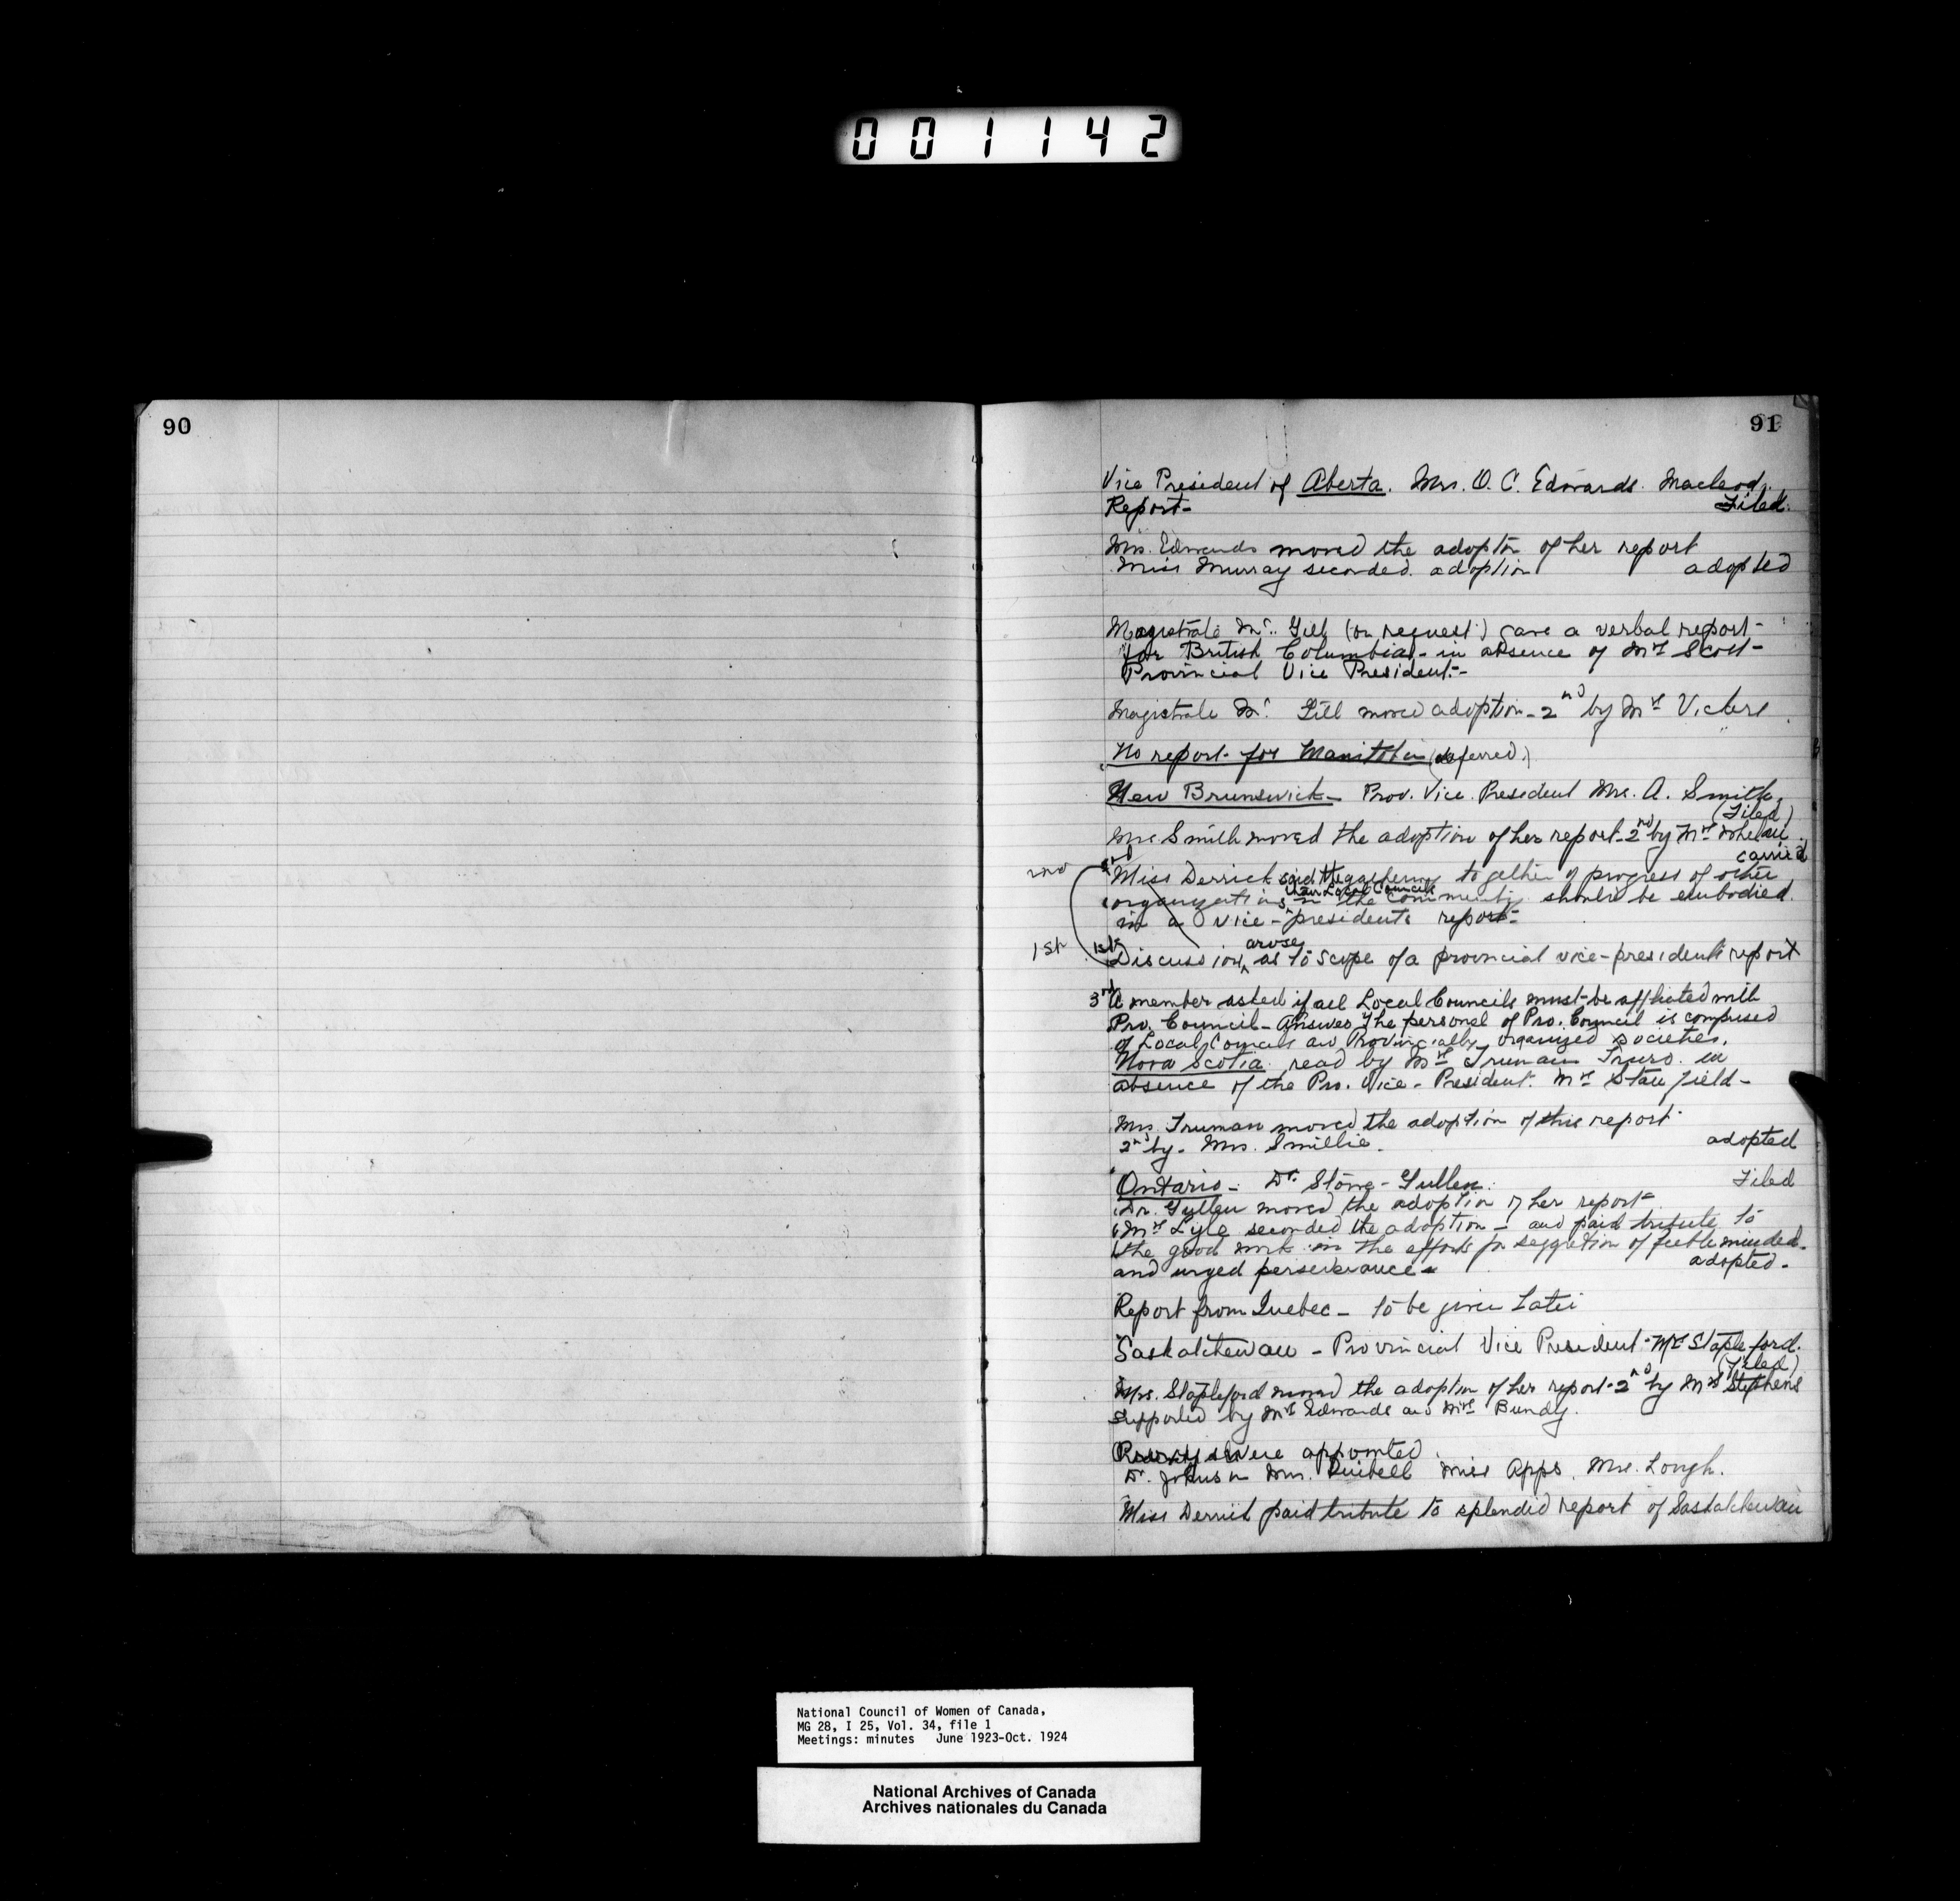 001142
90
91
Vice President of Aberta. Mrs. O. C. Edwards. Macleod.
Report- Filed.
Mrs. Edwards moved the adoptn of her report
Miss Murray seconded adoption adopted
Magistrate Mc. Gill (on request) gave a verbal report-
for British Columbia - in absence of Mrs Scott-
Provincial Vice President.-
Magistrate Mc. Gill moved adoption - 2nd by Mrs Vickers
No report for Manitoba (deferred)
New Brunswick - Prov. Vice. President Mrs. A. Smith,
(Filed)
Mrs Smith moved the adoption of her report - 2nd by Mrs Whelan
carried
2nd 2nd
Miss Derrick said the gathering together of progress of other
their Local Councils
organizations in the community should be embodied
in a vice-presidents report-
1st 1st arose
Discussion as to scope of a provincial vice-presidents report
3rd A member asked if all Local Councils must be affiliated with
Pro. Council - Answer The personel of Pro. Council is composed
of Local Councils and Provincially organized societies.
Nova Scotia read by Mrs Truman Truro. in
absence of the Pro. Vice - President. Mrs Stanfield -
Mrs. Truman moved the adoption of this report
2nd by - Mrs. Smillie. adopted
Ontario - Dr. Stowe-Gullen. Filed
Dr. Gullen moved the adoption of her report
Mrs Lyle seconded the adoption - and paid tribute to
the good work in the efforts for seggretion of feeble minded.
and urged perseverance - adopted.
Report from Quebec - to be given Later
Saskatchewan - Provincial Vice President - Mrs Stapleford.
(Filed)
Mrs. Stapleford moved the adoption of her report - 2nd by Mrs Stephens
supported by Mrs Edwards and Mrs Bundy.
were appointed
Dr. Johnson Mrs. Miss Apps. Mrs. Lough.
Miss Derrick paid tribute to splendid report of Saskatchewan
National Council of Women of Canada,
MG 28, I 25, Vol. 34, file 1
Meetings: minutes June 1923-Oct. 1924
National Archives of Canada
Archives nationales du Canada